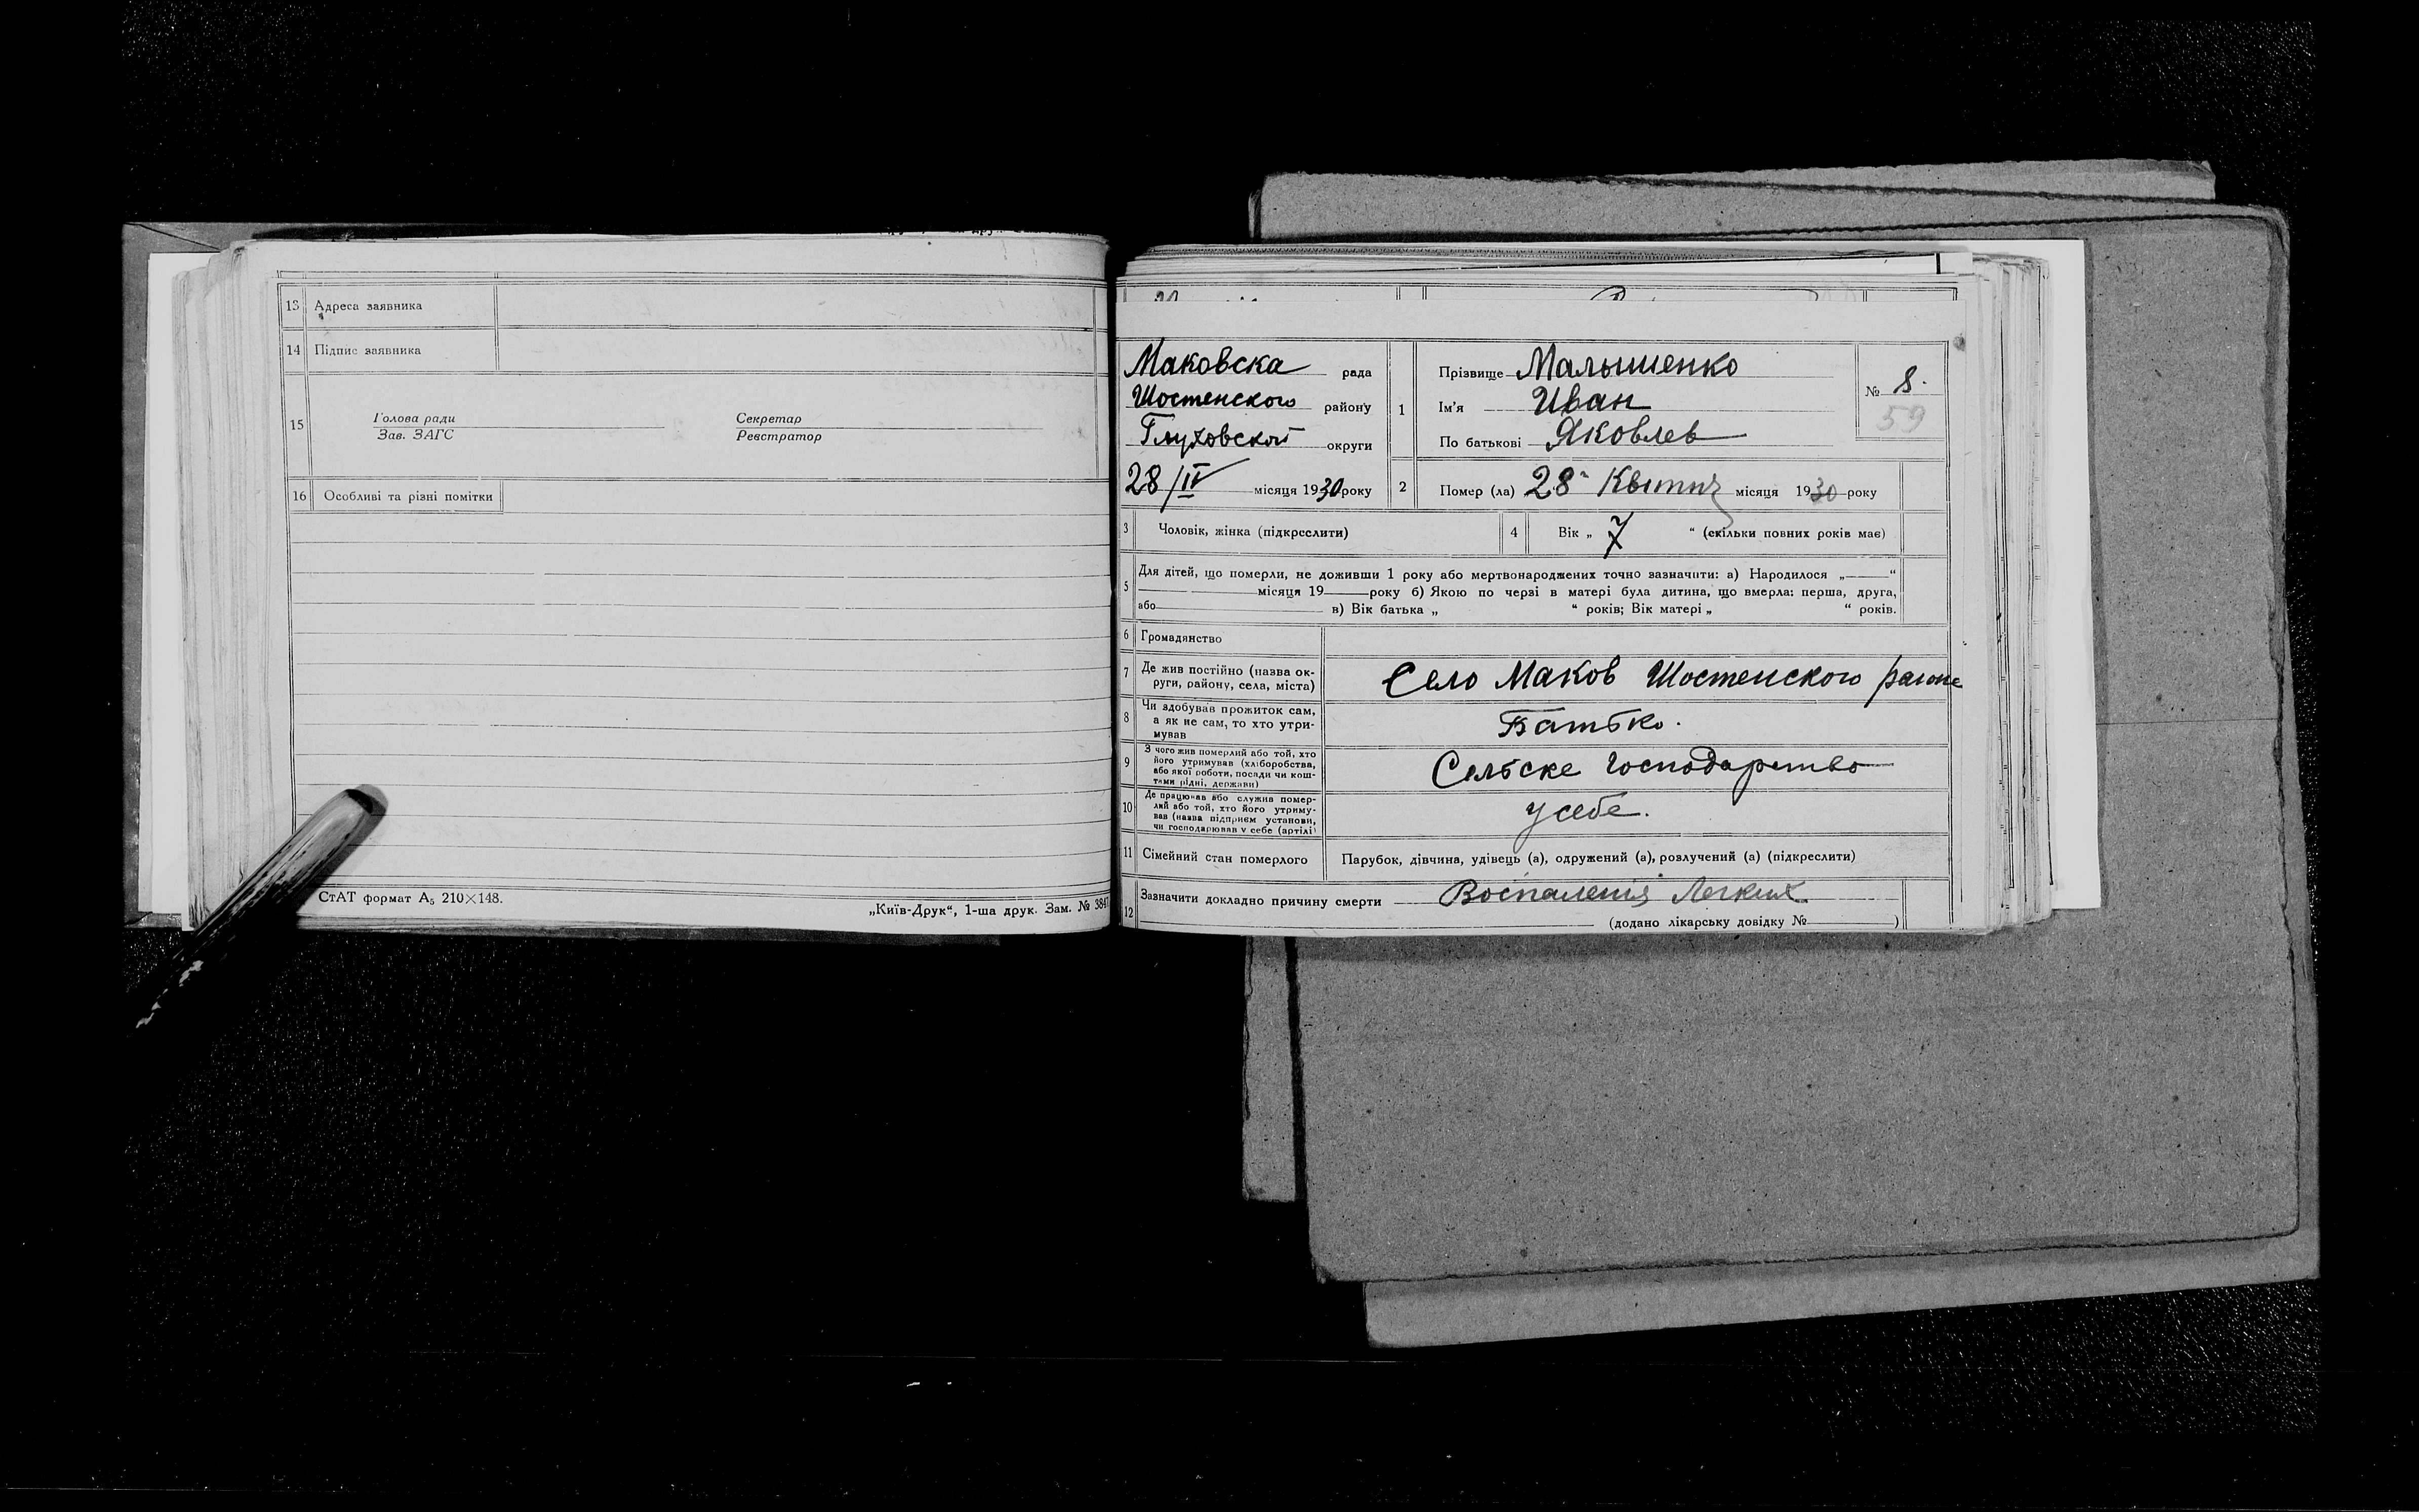 13 Адреса заявника
14 Підпис заявника
15 Голова ради Секретар
Зав. ЗАГС Реєстратор
16 Особливі та різні помітки
СтАТ формат А₅ 210×148.
„Київ-Друк“, 1-ша друк. Зам. № 3847
Маковска рада
Шостенского району
Глуховской округи
28/IV місяця 1930 року
1 Прізвище Малышенко
Ім'я Иван
По батькові Яковлев
№ 8.
59
2 Помер (ла) 28 Квітня місяця 1930 року
3 Чоловік, жінка (підкреслити)
4 Вік „ 7 “ (скільки повних років має)
5 Для дітей, що померли, не доживши 1 року або мертвонароджених точно зазначити: а) Народилося „ “
місяця 19 року б) Якою по черзі в матері була дитина, що вмерла: перша, друга,
або в) Вік батька „ “ років; Вік матері „ “ років.
6 Громадянство
7 Де жив постійно (назва ок-
руги, району, села, міста)
Село Маков Шостенского
8 Чи здобував прожиток сам,
а як не сам, то хто утри-
мував
Батько.
9 З чого жив померлий або той, хто
його утримував (хліборобства,
або якої роботи, посади чи кош-
тами рідні, держави)
Сельске господарство
10 Де працював або служив помер-
лий або той, хто його утриму-
вав (назва підприєм установи,
чи господарював у себе (артілі)
у себе.
11 Сімейний стан померлого Парубок, дівчина, удівець (а), одружений (а), розлучений (а) (підкреслити)
12 Зазначити докладно причину смерти Воспаления Легких
(додано лікарську довідку № )